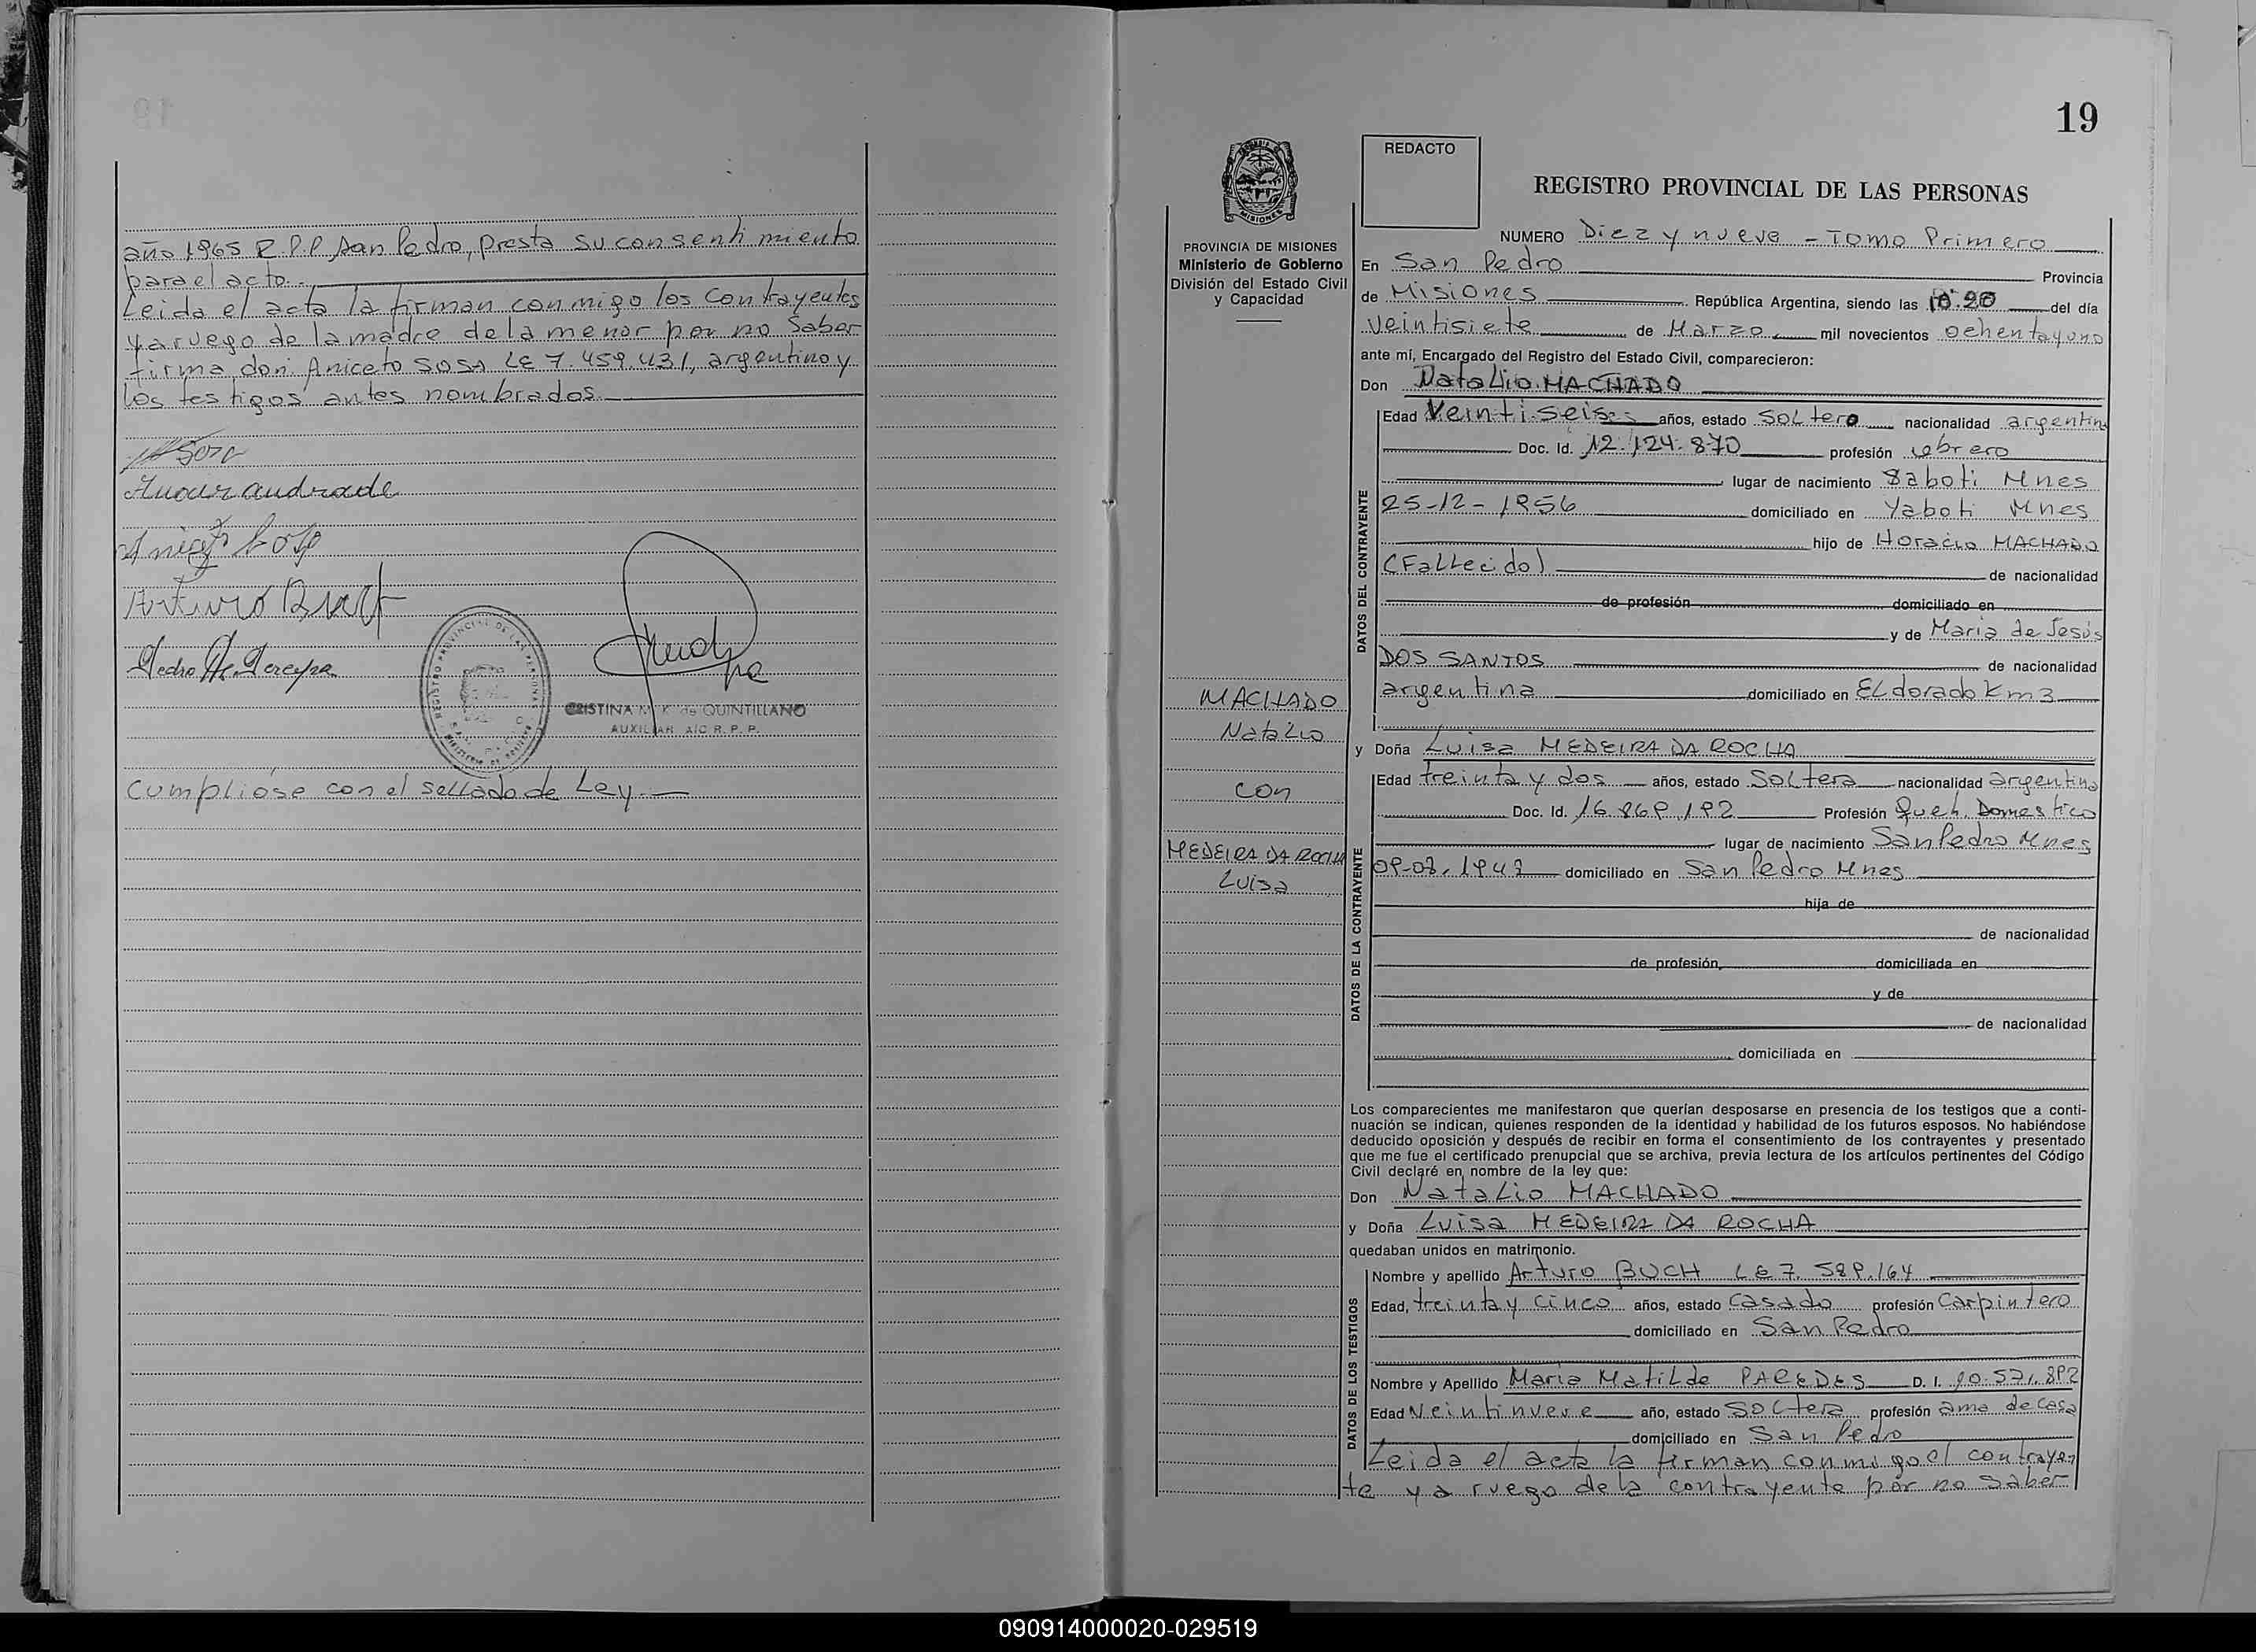 año 1965 R.P.P San Pedro, presta su consentimiento
para el acto.
Leida el acta la firman conmigo los contrayentes
y a ruego de la madre de la menor por no saber
firma don Aniceto SOSA LE 7.459.431, argentino y
los testigos antes nombrados.
Sosa
andrade
Arturo Buch
Pedro
REGISTRO PROVINCIAL DE LAS PERSONAS
CRISTINA M. K. de QUINTILLANO
AUXILIAR A/C R. P. P.
Cumplióse con el sellado de Ley.
19
MISIONES
PROVINCIA DE MISIONES
Ministerio de Gobierno
División del Estado Civil
y Capacidad
MACHADO
Natalio
con
MEDEIRA DA ROCHA
Luisa
REDACTO
REGISTRO PROVINCIAL DE LAS PERSONAS
NUMERO Diez y nueve - Tomo Primero
En San Pedro Provincia
de Misiones República Argentina, siendo las 10:20 del día
veintisiete de Marzo mil novecientos ochenta y uno
ante mí, Encargado del Registro del Estado Civil, comparecieron:
Don Natalio MACHADO
DATOS DEL CONTRAYENTE
Edad Veintiseis años, estado soltero nacionalidad argentina
Doc. Id. 12.124.870 profesión obrero
lugar de nacimiento Yaboti Mnes
25-12-1956 domiciliado en Yaboti Mnes
hijo de Horacio MACHADO
(Fallecido) de nacionalidad
de profesión domiciliado en
y de Maria de Jesús
DOS SANTOS de nacionalidad
argentina domiciliado en Eldorado Km 3
y Doña Luisa MEDEIRA DA ROCHA
DATOS DE LA CONTRAYENTE
Edad treinta y dos años, estado Soltera nacionalidad argentina
Doc. Id. 16.869.192 Profesión Queh. Domestico
lugar de nacimiento San Pedro Mnes
domiciliado en San Pedro Mnes
hija de
de nacionalidad
de profesión domiciliada en
y de
de nacionalidad
domiciliada en
Los comparecientes me manifestaron que querían desposarse en presencia de los testigos que a conti-
nuación se indican, quienes responden de la identidad y habilidad de los futuros esposos. No habiéndose
deducido oposición y después de recibir en forma el consentimiento de los contrayentes y presentado
que me fue el certificado prenupcial que se archiva, previa lectura de los artículos pertinentes del Código
Civil declaré en nombre de la ley que:
Don Natalio MACHADO
y Doña Luisa MEDEIRA DA ROCHA
quedaban unidos en matrimonio.
DATOS DE LOS TESTIGOS
Nombre y apellido Arturo BUCH LE 7.589.164
Edad, treinta y cinco años, estado Casado profesión Carpintero
domiciliado en San Pedro
Nombre y Apellido Maria Matilde PAREDES D. I.
Edad Veintinueve año, estado Soltera profesión ama de casa
domiciliado en San Pedro
Leida el acta la firman conmigo el contrayen
te y a ruego de la contrayente por no saber
090914000020-029519